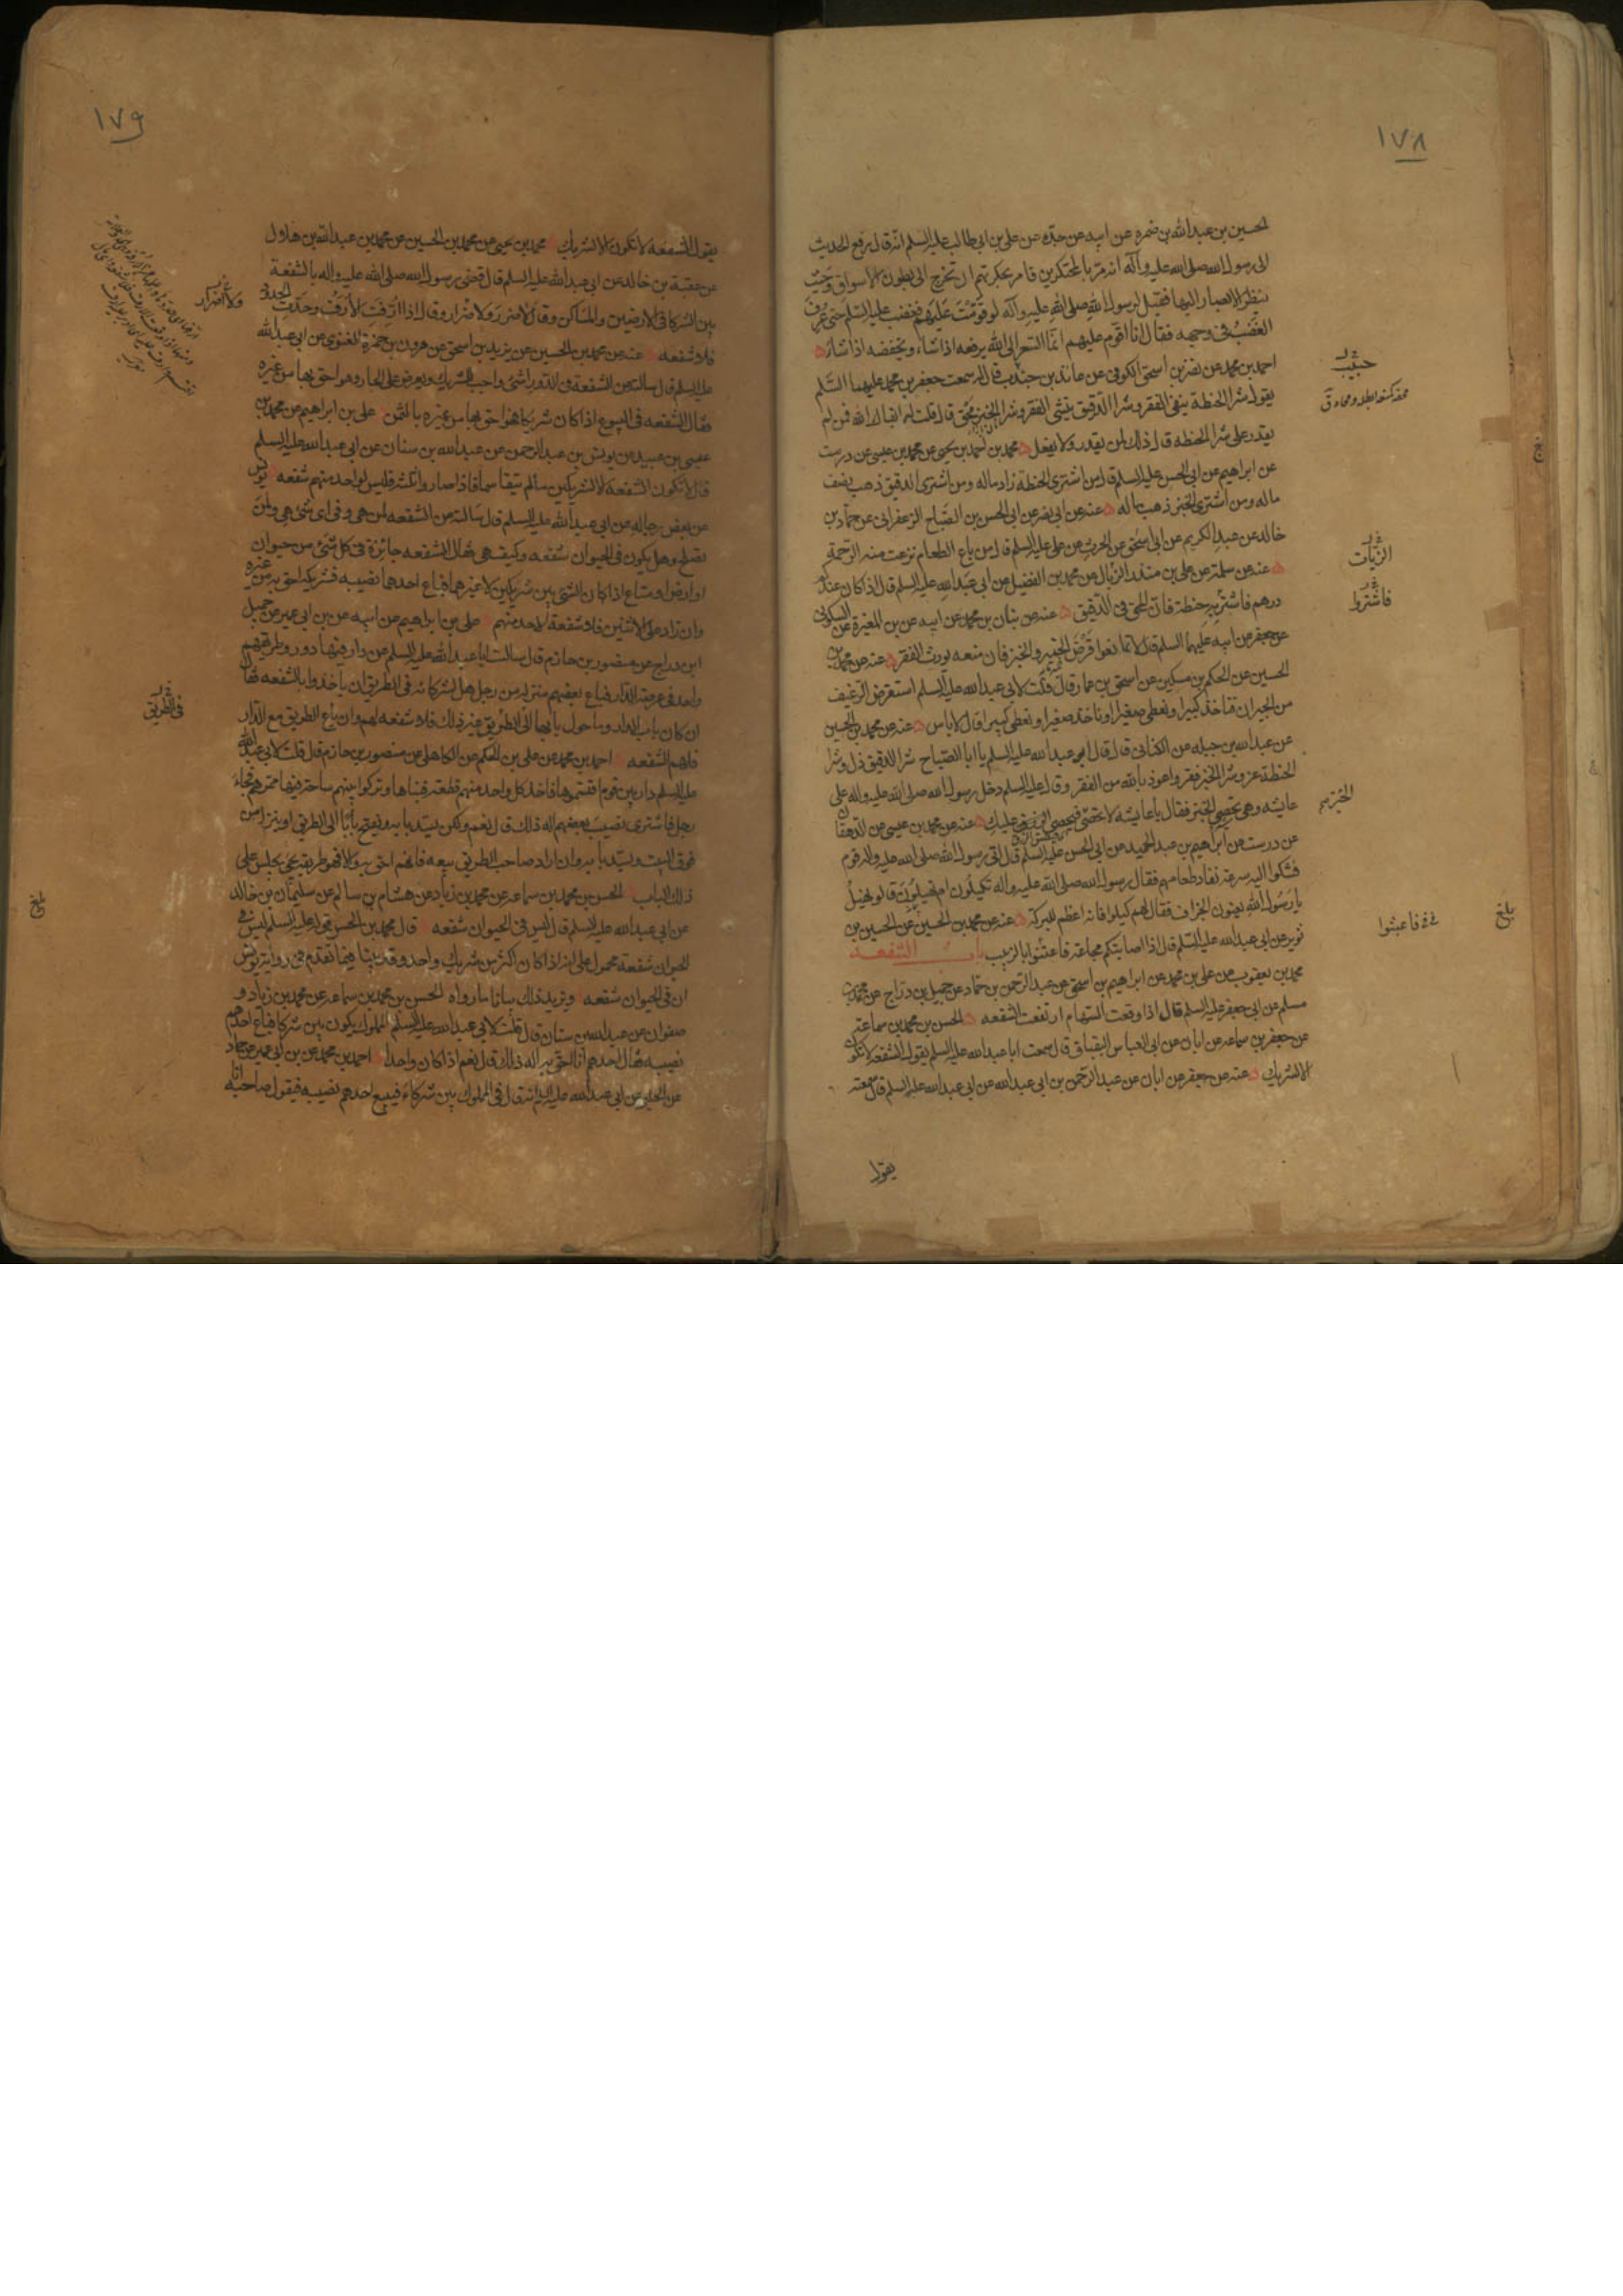 ١٧٨
الحسين بن عبدالله بن ضمره عن ابيه عن جده عن علي بن ابي طالب عليه السلم انه قال رفع الحديث
الى رسول الله صلى الله عليه وآله انه مر بالمحتكرين فامر بحكرتهم ان تخرج الى بطون الاسواق وحيث
ينظر الابصار اليها فقيل لرسول الله صلى الله عليه وآله لو قومت عليهم فغضب عليه السلم حتى عرف
الغضب في وجهه فقال انا اقوم عليهم انما السعر الى الله يرفعه اذا شاء ويخفضه اذا شاء
احمد بن محمد عن نضر بن اسحق الكوفي عن عائذ بن جندب قال سمعت جعفر بن محمد عليهما السلم
يقول شرا الحنطة ينفي الفقر وشرا الدقيق ينشئ الفقر وشرا الخبز محق قال قلت له ابقاك الله فمن لم
يقدر على شرا الحنطه قال ذاك لمن يقدر ولا يفعل محمد بن احمد بن يحيى عن محمد بن عيسى عن درست
عن ابراهيم عن ابي الحسن عليه السلم قال من اشترى الحنطة زاد ماله ومن اشترى الدقيق ذهب نصف
ماله ومن اشترى الخبز ذهب ماله عنه عن ابي نصر عن ابي الحسن بن الصباح الزعفراني عن حماد بن
خالد عن عبد الكريم عن ابي اسحق عن الحرث عن علي عليه السلم قال من باع الطعام نزعت منه الرحمة
عنه عن سلمة عن علي بن منذر الزبال عن محمد بن الفضيل عن ابي عبد الله عليه السلم قال اذا كان عندك
درهم فاشتر به حنطة فان المحق في الدقيق عنه عن بنان بن محمد عن ابيه عن بن المغيرة عن السكوني
عن جعفر عن ابيه عليهما السلم قال لا تمانعوا قرض الخمير والخبز فان منعه يورث الفقر عنه عن محمد بن
الحسين عن الحكم بن مسكين عن اسحق بن عمار قال قلت لابي عبد الله عليه السلم استقرض الرغيف
من الجيران فناخذ كبيرا ونعطي صغيرا وناخذ صغيرا ونعطي كبيرا قال لا باس عنه عن محمد بن الحسين
عن عبدالله بن جبله عن الكناني قال قال ابو عبد الله عليه السلم يا ابا الصباح شرا الدقيق ذل وشرا
الحنطة عز وشرا الخبز فقر واعوذ بالله من الفقر وقال عليه السلم دخل رسول الله صلى الله عليه واله على
عايشه وهي تحصي الخبز فقال يا عايشه لا تحصي فيحصى عليك عنه عن محمد بن عيسى عن الدهقان
عن درست عن ابراهيم بن عبد الحميد عن ابي الحسن عليه السلم قال اتى رسول الله صلى الله عليه واله قوم
فشكوا اليه سرعة نفاد طعامهم فقال رسول الله صلى الله عليه واله تكيلون ام تهيلون قالوا نهيل
يا رسول الله يعنون الجزاف فقال لهم كيلوا فانه اعظم للبركة عنه عن محمد بن الحسين عن الحسين بن
ثوير عن ابي عبد الله عليه السلم قال اذا اصابتكم مجاعة فاعتنوا بالزبيب باب الشفعه
محمد بن يعقوب عن علي بن محمد عن ابراهيم بن اسحق عن عبد الرحمن بن حماد عن جميل بن دراج عن محمد بن
مسلم عن ابي جعفر عليه السلم قال اذا وقعت السهام ارتفعت الشفعه الحسن بن محمد بن سماعة
عن جعفر بن سماعه عن ابان عن ابي العباس البقباق قال سمعت ابا عبد الله عليه السلم يقول الشفعه لا تكون
الا لشريك عنه عن جعفر عن ابان عن عبد الرحمن بن ابي عبد الله عن ابي عبد الله عليه السلم قال سمعته
يقول
حبيب
الزيات
فاشتروا
الخبز
فاعتبثوا
بلغ
١٧٩
يقول الشفعه لا تكون الا لشريك محمد بن يحيى عن محمد بن الحسين عن محمد بن عبد الله بن هلال
عن عقبة بن خالد عن ابي عبد الله عليه السلم قال قضى رسول الله صلى الله عليه واله بالشفعة
بين الشركا في الارضين والمساكن وقال لا ضرر ولا ضرار وقال اذا ارفت الارف وحدت الحدود
فلا شفعه عنه عن محمد بن الحسين عن يزيد بن اسحق عن هرون بن حمزة الغنوي عن ابي عبد الله
عليه السلم قال سالته عن الشفعه في الدور اشئ واجب للشريك ويعرض على الجار وهو احق بها من غيره
فقال الشفعه في البيوع اذا كان شريكا فهو احق بها من غيره بالثمن علي بن ابراهيم عن محمد بن
عيسى بن عبيد عن يونس بن عبد الرحمن عن عبد الله بن سنان عن ابي عبد الله عليه السلم
قال لا تكون الشفعه الا لشريكين ما لم يتقاسما فاذا صاروا ثلثه فليس لواحد منهم شفعه يونس
عن بعض رجاله عن ابي عبد الله عليه السلم قال سالته عن الشفعه لمن هي وفي اي شئ هي ولمن
تصلح وهل يكون في الحيوان شفعه وكيف هي فقال الشفعه جائزة في كل شئ من حيوان
او ارض او متاع اذا كان الشئ بين شريكين لا غيرهما فباع احدهما نصيبه فشريكه احق به من غيره
وان زاد على الاثنين فلا شفعة لاحد منهم علي بن ابراهيم عن ابيه عن بن ابي عمير عن جميل
ابن دراج عن منصور بن حازم قال سالت ابا عبد الله عليه السلم عن دار فيها دور وطريقهم
واحد في عرصة الدار فباع بعضهم منزله من رجل هل لشركائه في الطريق ان ياخذوا بالشفعه فقال
ان كان باب الدار وما حول بابها الى الطريق غير ذلك فلا شفعه لهم وان باع الطريق مع الدار
فلهم الشفعه احمد بن محمد عن علي بن الحكم عن الكاهلي عن منصور بن حازم قال قلت لابي عبد الله
عليه السلم دار بين قوم اقتسموها فاخذ كل واحد منهم قطعة فبناها وتركوا بينهم ساحة فيها ممرهم فجاء
رجل فاشترى نصيب بعضهم اله ذلك قال نعم ولكن يسد بابه ويفتح بابا الى الطريق او ينزل من
فوق البيت ويسد بابه وان اراد صاحب الطريق بيعه فانهم احق به والا فهو طريقه يجئ يجلس على
ذلك الباب الحسن بن محمد بن سماعه عن محمد بن زياد عن هشام بن سالم عن سليمان بن خالد
عن ابي عبد الله عليه السلم قال ليس في الحيوان شفعه قال محمد بن الحسن قوله عليه السلم ليس في
الحيوان شفعة محمول على انه اذا كان اكثر من شريك واحد وقد بينا فيما تقدم في رواية يونس
ان في الحيوان شفعه ويزيد ذلك بيانا ما رواه الحسن بن محمد بن سماعه عن محمد بن زياد و
صفوان عن عبد الله بن سنان قال قلت لابي عبد الله عليه السلم المملوك يكون بين شركا فباع احدهم
نصيبه فقال احدهم انا احق به اله ذلك قال نعم اذا كان واحدا احمد بن محمد عن بن ابي عمير عن حماد
عن الحلبي عن ابي عبد الله عليه السلم انه قال في المملوك بين شركاء فيبيع احدهم نصيبه فيقول صاحبه انا
ولا اضرار
في الطريق
بلغ